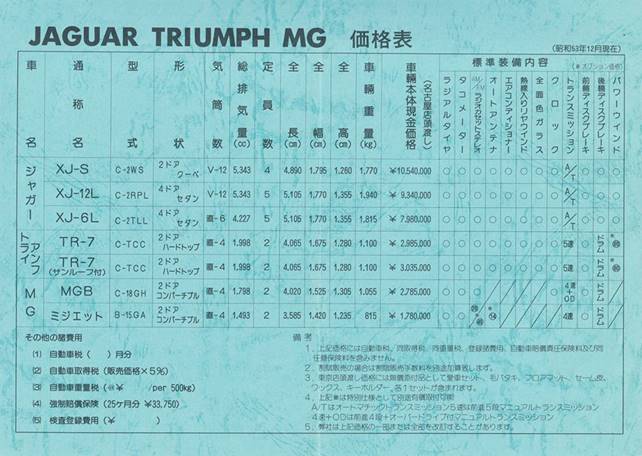 JAGUAR TRIUMPH MG 価格表
(昭和53年12月現在)
車名 通称名 型式 形状 気筒数 総排気量(cc) 定員数 全長(cm) 全幅(cm) 全高(cm) 車輛重量(kg) 車輛本体現金価格(名古屋店頭渡し) 標準装備内容 (※オプション価格)
ラジアルタイヤ タコメーター ラジオカセットステレオ オートアンテナ エアコンディショナー 熱線入りリヤウインド 全面色ガラス クロック トランスミッション 前輪ディスクブレーキ 後輪ディスクブレーキ パワーウインド
ジャガー XJ-S C-2WS 2ドアクーペ V-12 5,343 4 4,890 1,795 1,260 1,770 ¥10,540,000 ○ ○ ○ ○ ○ ○ ○ ○ A/T ○ ○ ○
XJ-12L C-2RPL 4ドアセダン V-12 5,343 5 5,105 1,770 1,355 1,940 ¥9,340,000 ○ ○ ○ ○ ○ ○ ○ ○ A/T ○ ○ ○
XJ-6L C-2TLL 4ドアセダン 直-6 4,227 5 5,105 1,770 1,355 1,815 ¥7,980,000 ○ ○ ○ ○ ○ ○ ○ ○ A/T ○ ○ ○
トライアンフ TR-7 C-TCC 2ドアハードトップ 直-4 1,998 2 4,065 1,675 1,280 1,100 ¥2,985,000 ○ ○ ○ ○ ○ ○ ○ ○ 5速 ○ ドラム
TR-7(サンルーフ付) C-TCC 2ドアハードトップ 直-4 1,998 2 4,065 1,675 1,280 1,100 ¥3,035,000 ○ ○ ○ ○ ○ ○ ○ ○ 5速 ○ ドラム
MG MGB C-18GH 2ドアコンバーチブル 直-4 1,798 2 4,020 1,525 1,305 1,055 ¥2,785,000 4速+OD ○ ドラム
ミジェット B-15GA 2ドアコンバーチブル 直-4 1,493 2 3,585 1,420 1,235 815 ¥1,780,000 4速 ○ ドラム
その他の諸費用
(1) 自動車税( )月分
(2) 自動車取得税(販売価格×5%)
(3) 自動車重量税(@¥ /per 500kg)
(4) 強制賠償保険(25ヶ月分 ¥33,750)
(5) 検査登録費用( )
備考
1、上記価格には自動車税、同取得税、同重量税、登録諸費用、自動車賠償責任保険料及び同
任意保険料を含みません。
2、割賦販売の場合は割賦販売手数料を別途加算致します。
3、東京店頭渡し価格には無償添付品として愛車セット、毛バタキ、フロアマット、セーム皮、
ワックス、キーホルダー、各1セットが含まれます。
4、上記※は特別仕様として別途有償取付可能
A/Tはオートマチックトランスミッション5速は前進5段マニュアルトランスミッション
4速+ODは前進4段+オーバードライブ付マニュアルトランスミッション
5、弊社は上記価格の一部または全部を改訂することがあります。